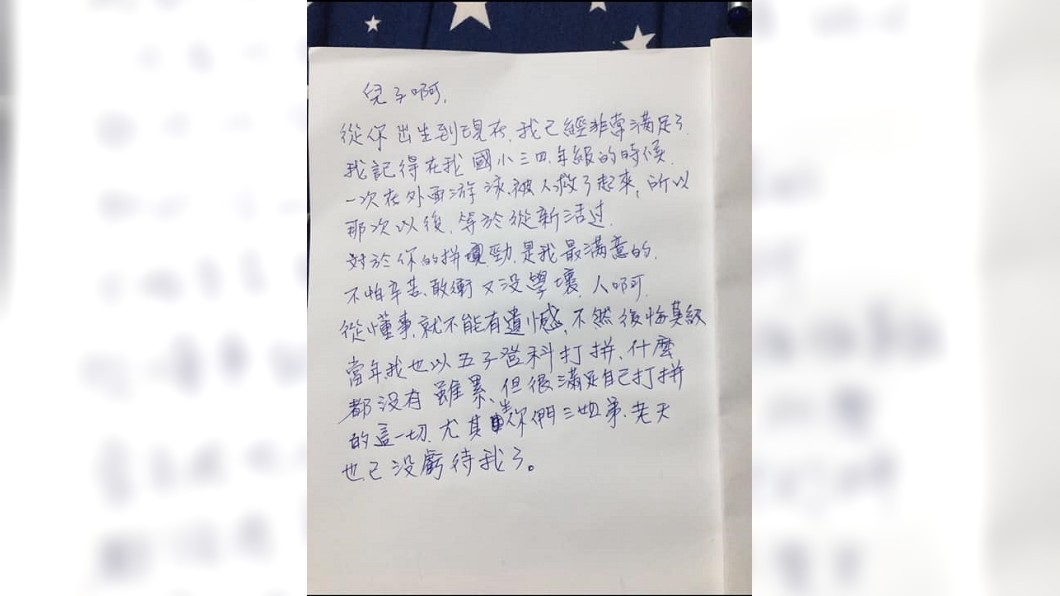 兒子啊,
從你出生到現在,我已經非常滿足了.
我記得在我國小三四年級的時候.
一次在外面游泳.被人救了起來,所以
那次以後,等於從新活过.
對於你的拼勁.是我最滿意的.
不怕辛苦.敢衝又没學壞.人啊.
從懂事.就不能有遺憾.不然後悔莫級
當年我也以五子登科打拼.什麼
都没有雖累、但很滿足自己打拼
的這一切.尤其生你們三姐弟.老天
也已没虧待我了。